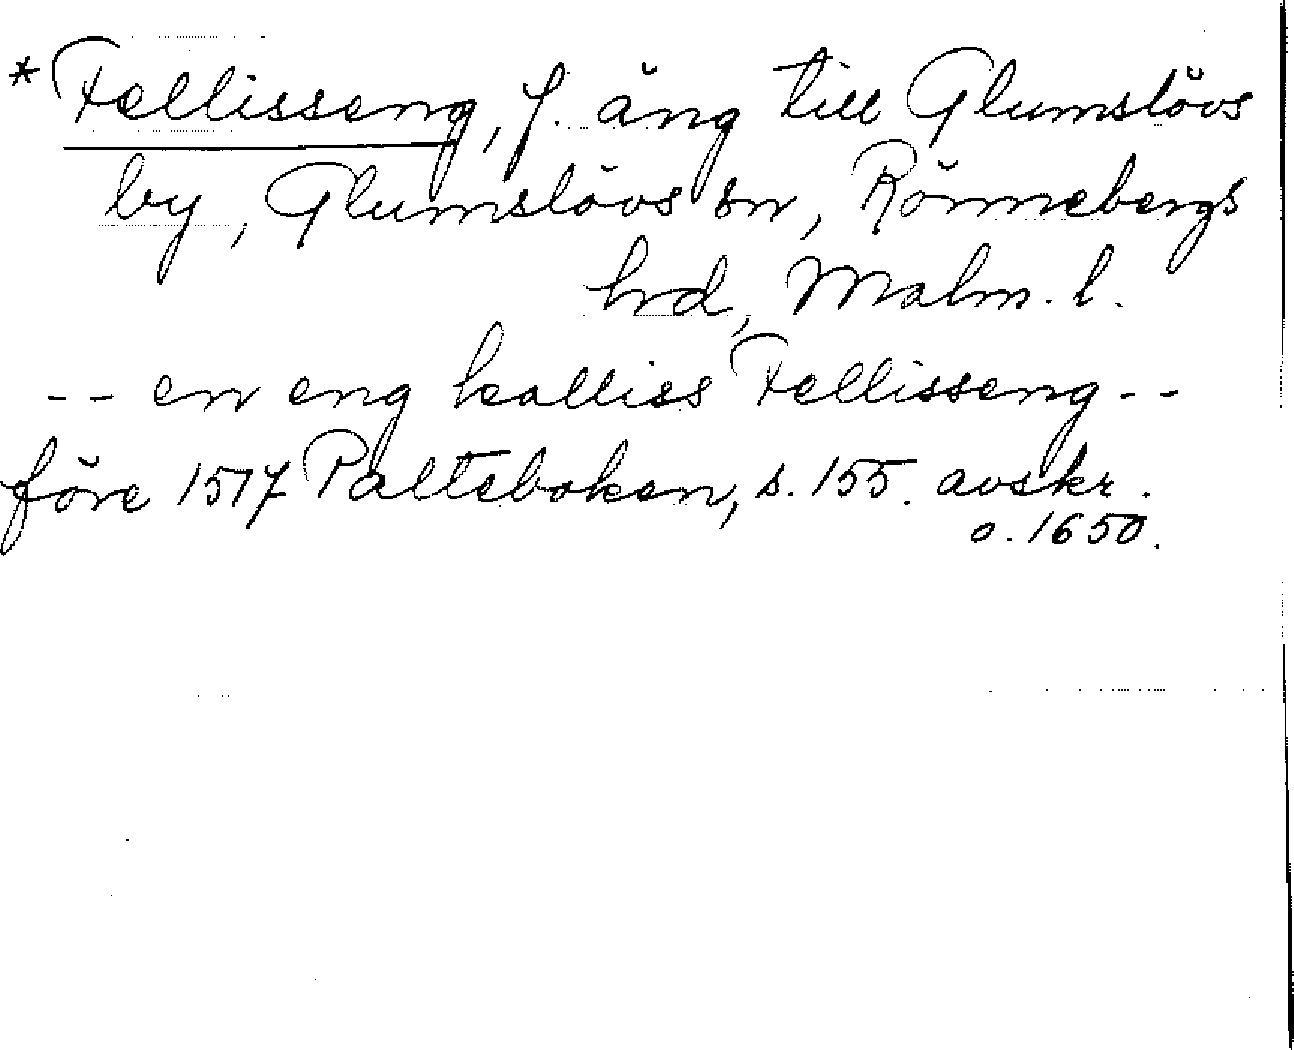 *Fellisseng, f. äng till Glumslövs
by, Glumslövs sn, Rönnebergs
hrd, Malm. l.
-- en eng kalliss Fellisseng --
före 1517 Palteboken, s. 155. avskr.
o. 1650.